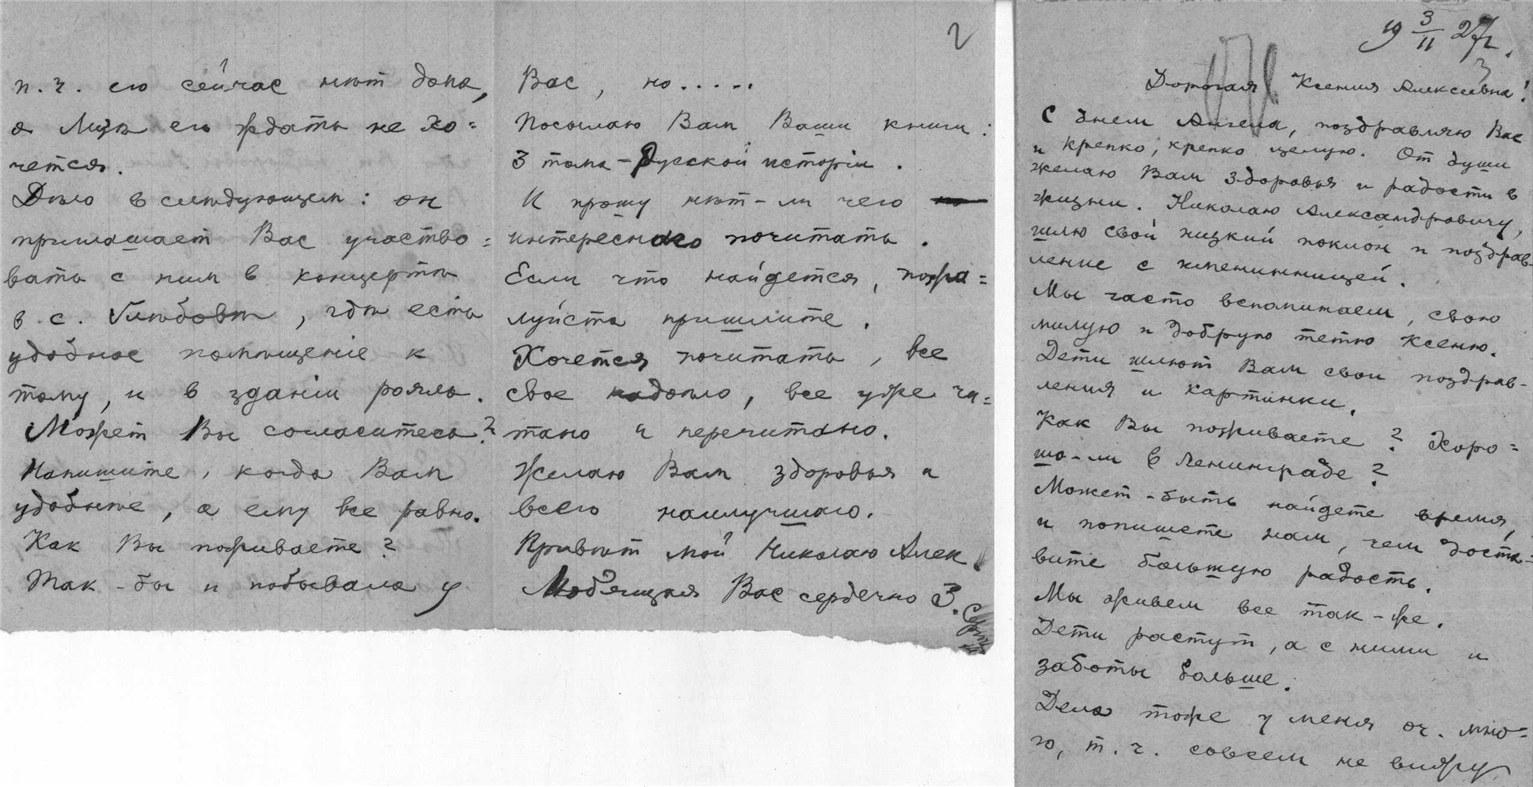 п. ч. его сейчас нѣт дома,
а Лизѣ его ждать не хо=
чется.
Дѣло в слѣдующем: он
приглашает Вас участво=
вать с ним в концертѣ
в с. Глѣбовѣ, гдѣ есть
удобное помѣщеніе к
тому, и в зданіи рояль.
Может Вы согласитесь?
Напишите, когда Вам
удобнѣе, а ему все равно.
Как Вы поживаете?
Так-бы и побывала у
2
Вас, но.....
Посылаю Вам Ваши книги:
3 тома - Русской исторіи.
И прошу нѣт-ли чего
интереснаго почитать.
Если что найдется, пожа=
луйста пришлите.
Хочется почитать, все
свое надоѣло, все уже чи=
тано и перечитано.
Желаю Вам здоровья и
всего наилучшаго.
Привѣт мой Николаю Алек.
Любящая Вас сердечно З.
19 3/11 27г.
3
Дорогая Ксения Алексеевна!
С днем Ангела, поздравляю Вас
и крепко, крепко целую. От души
желаю Вам здоровья и радости в
жизни. Николаю Александровичу,
шлю свой низкий поклон и поздрав-
ление с имениницей.
Мы часто вспоминаем, свою
милую и добрую тетю Ксеню.
Дети шлют Вам свои поздрав-
ления и картинки.
Как Вы поживаете? Хоро=
шо-ли в Ленинграде?
Может-быть найдете время,
и попишете нам, чем доста=
вите большую радость.
Мы живем все так-же.
Дети растут, а с ними и
заботы больше.
Дела тоже у меня оч. мно=
го, т. ч. совсем не вижу